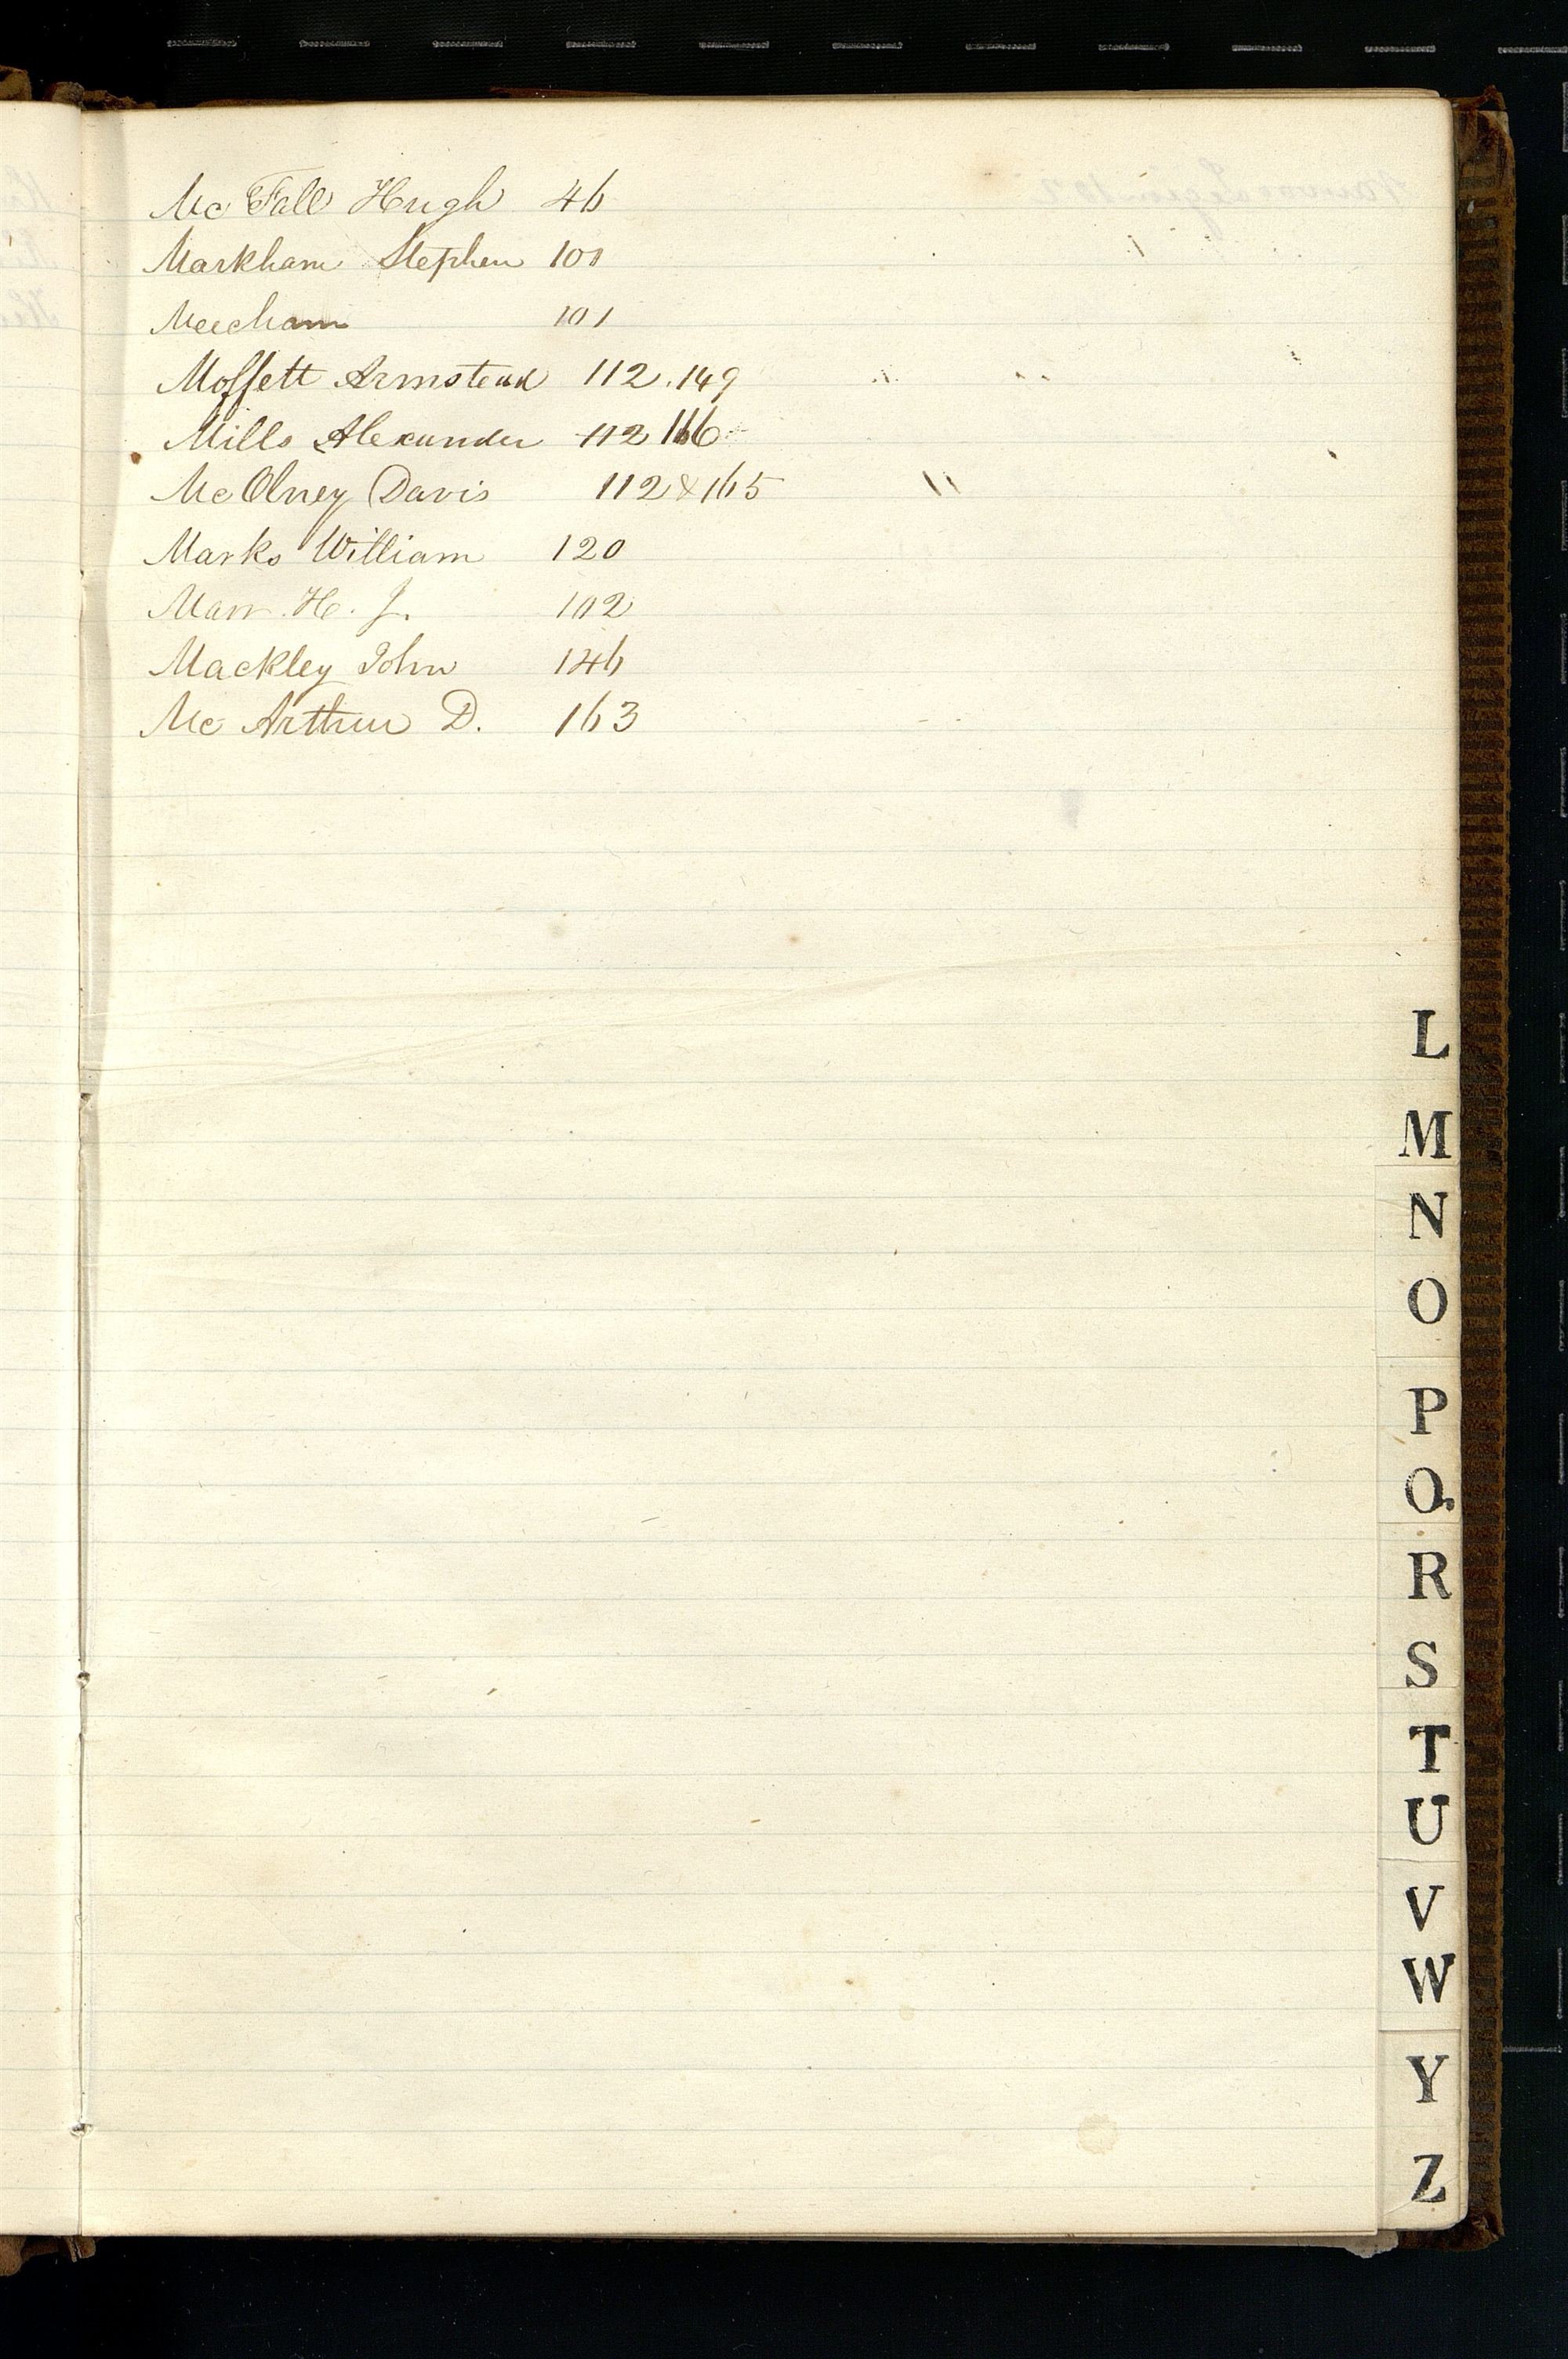 Mc Fall Hugh 46
Markham Stephen 101
Meecham 101
Moffett Armstead 112.149
Mills Alexander 112 166
McOlney Davis 112 & 165
Marks William 120
Marr. H. J. 102
Mackley John 146
Mc Arthur D. 163
L
M
N
O
P
Q
R
S
T
U
V
W
Y
Z